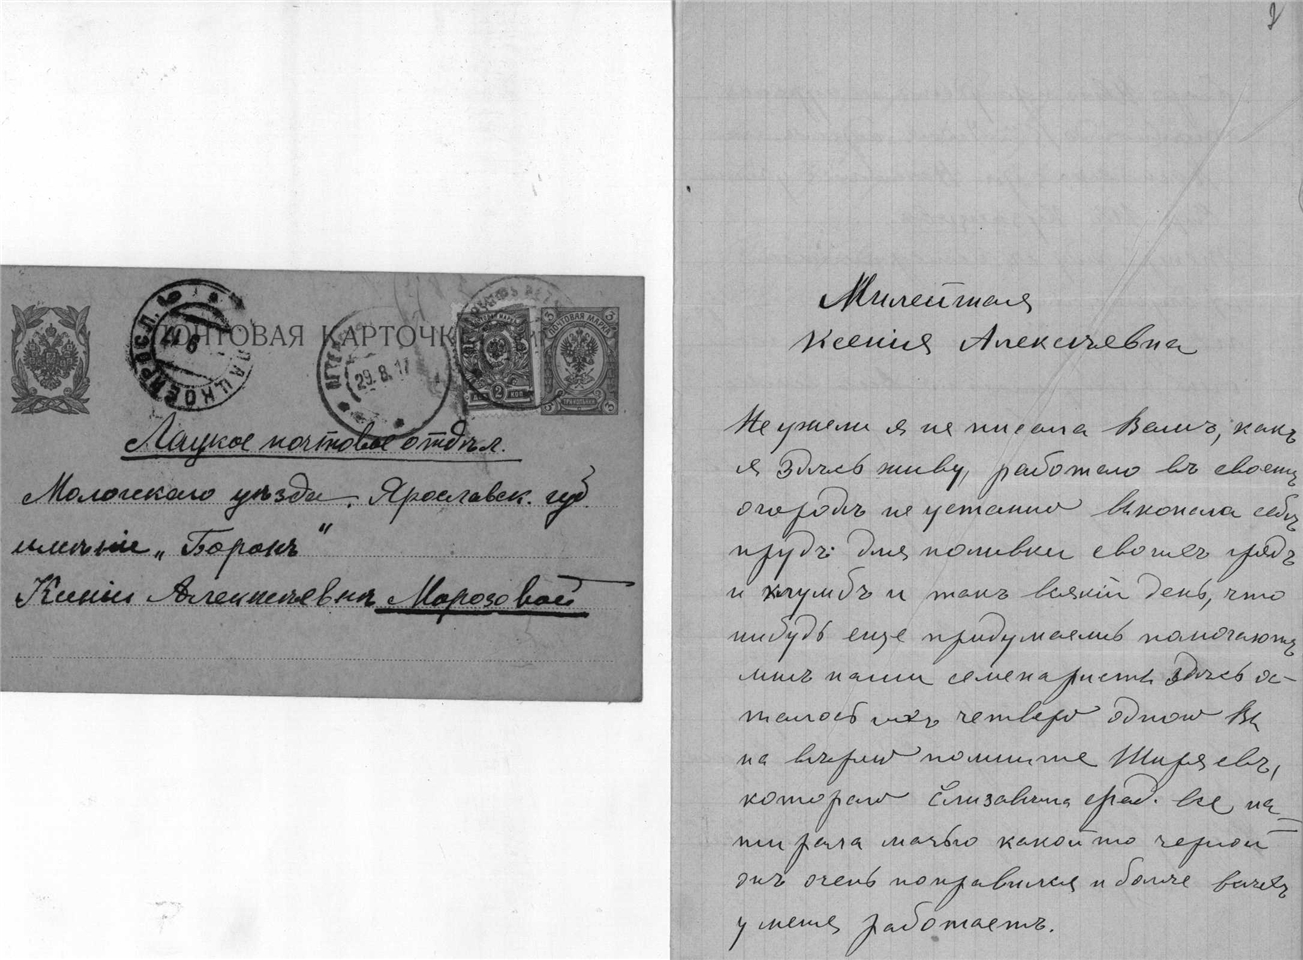 ПОЧТОВАЯ КАРТОЧК
ПОЧТОВАЯ МАРКА
3
2 КОП
29.8.17
Лацкое почтовое отдѣл.
Мологскаго уѣзда, Ярославск. губ
имѣніе „Борокъ"
Ксеніи Алексѣевнѣ Морозовой
2
Милейшая
Ксенія Алексѣевна
Неужели я не писала Вамъ, какъ
я здѣсь живу, работаю въ своемъ
огородѣ неустанно выкопала себѣ
прудъ для поливки своихъ грядъ
и клумбъ и такъ всякій день, что
нибудь еще придумаемъ помогаютъ
мнѣ наши семенаристы здѣсь ос-
талось ихъ четверо одного Вы
на вѣрно помните Ширяевъ,
котораго Елизавета все на-
тирала мазью какой то черной
онъ очень поправился и болѣе всѣхъ
у меня работаетъ.